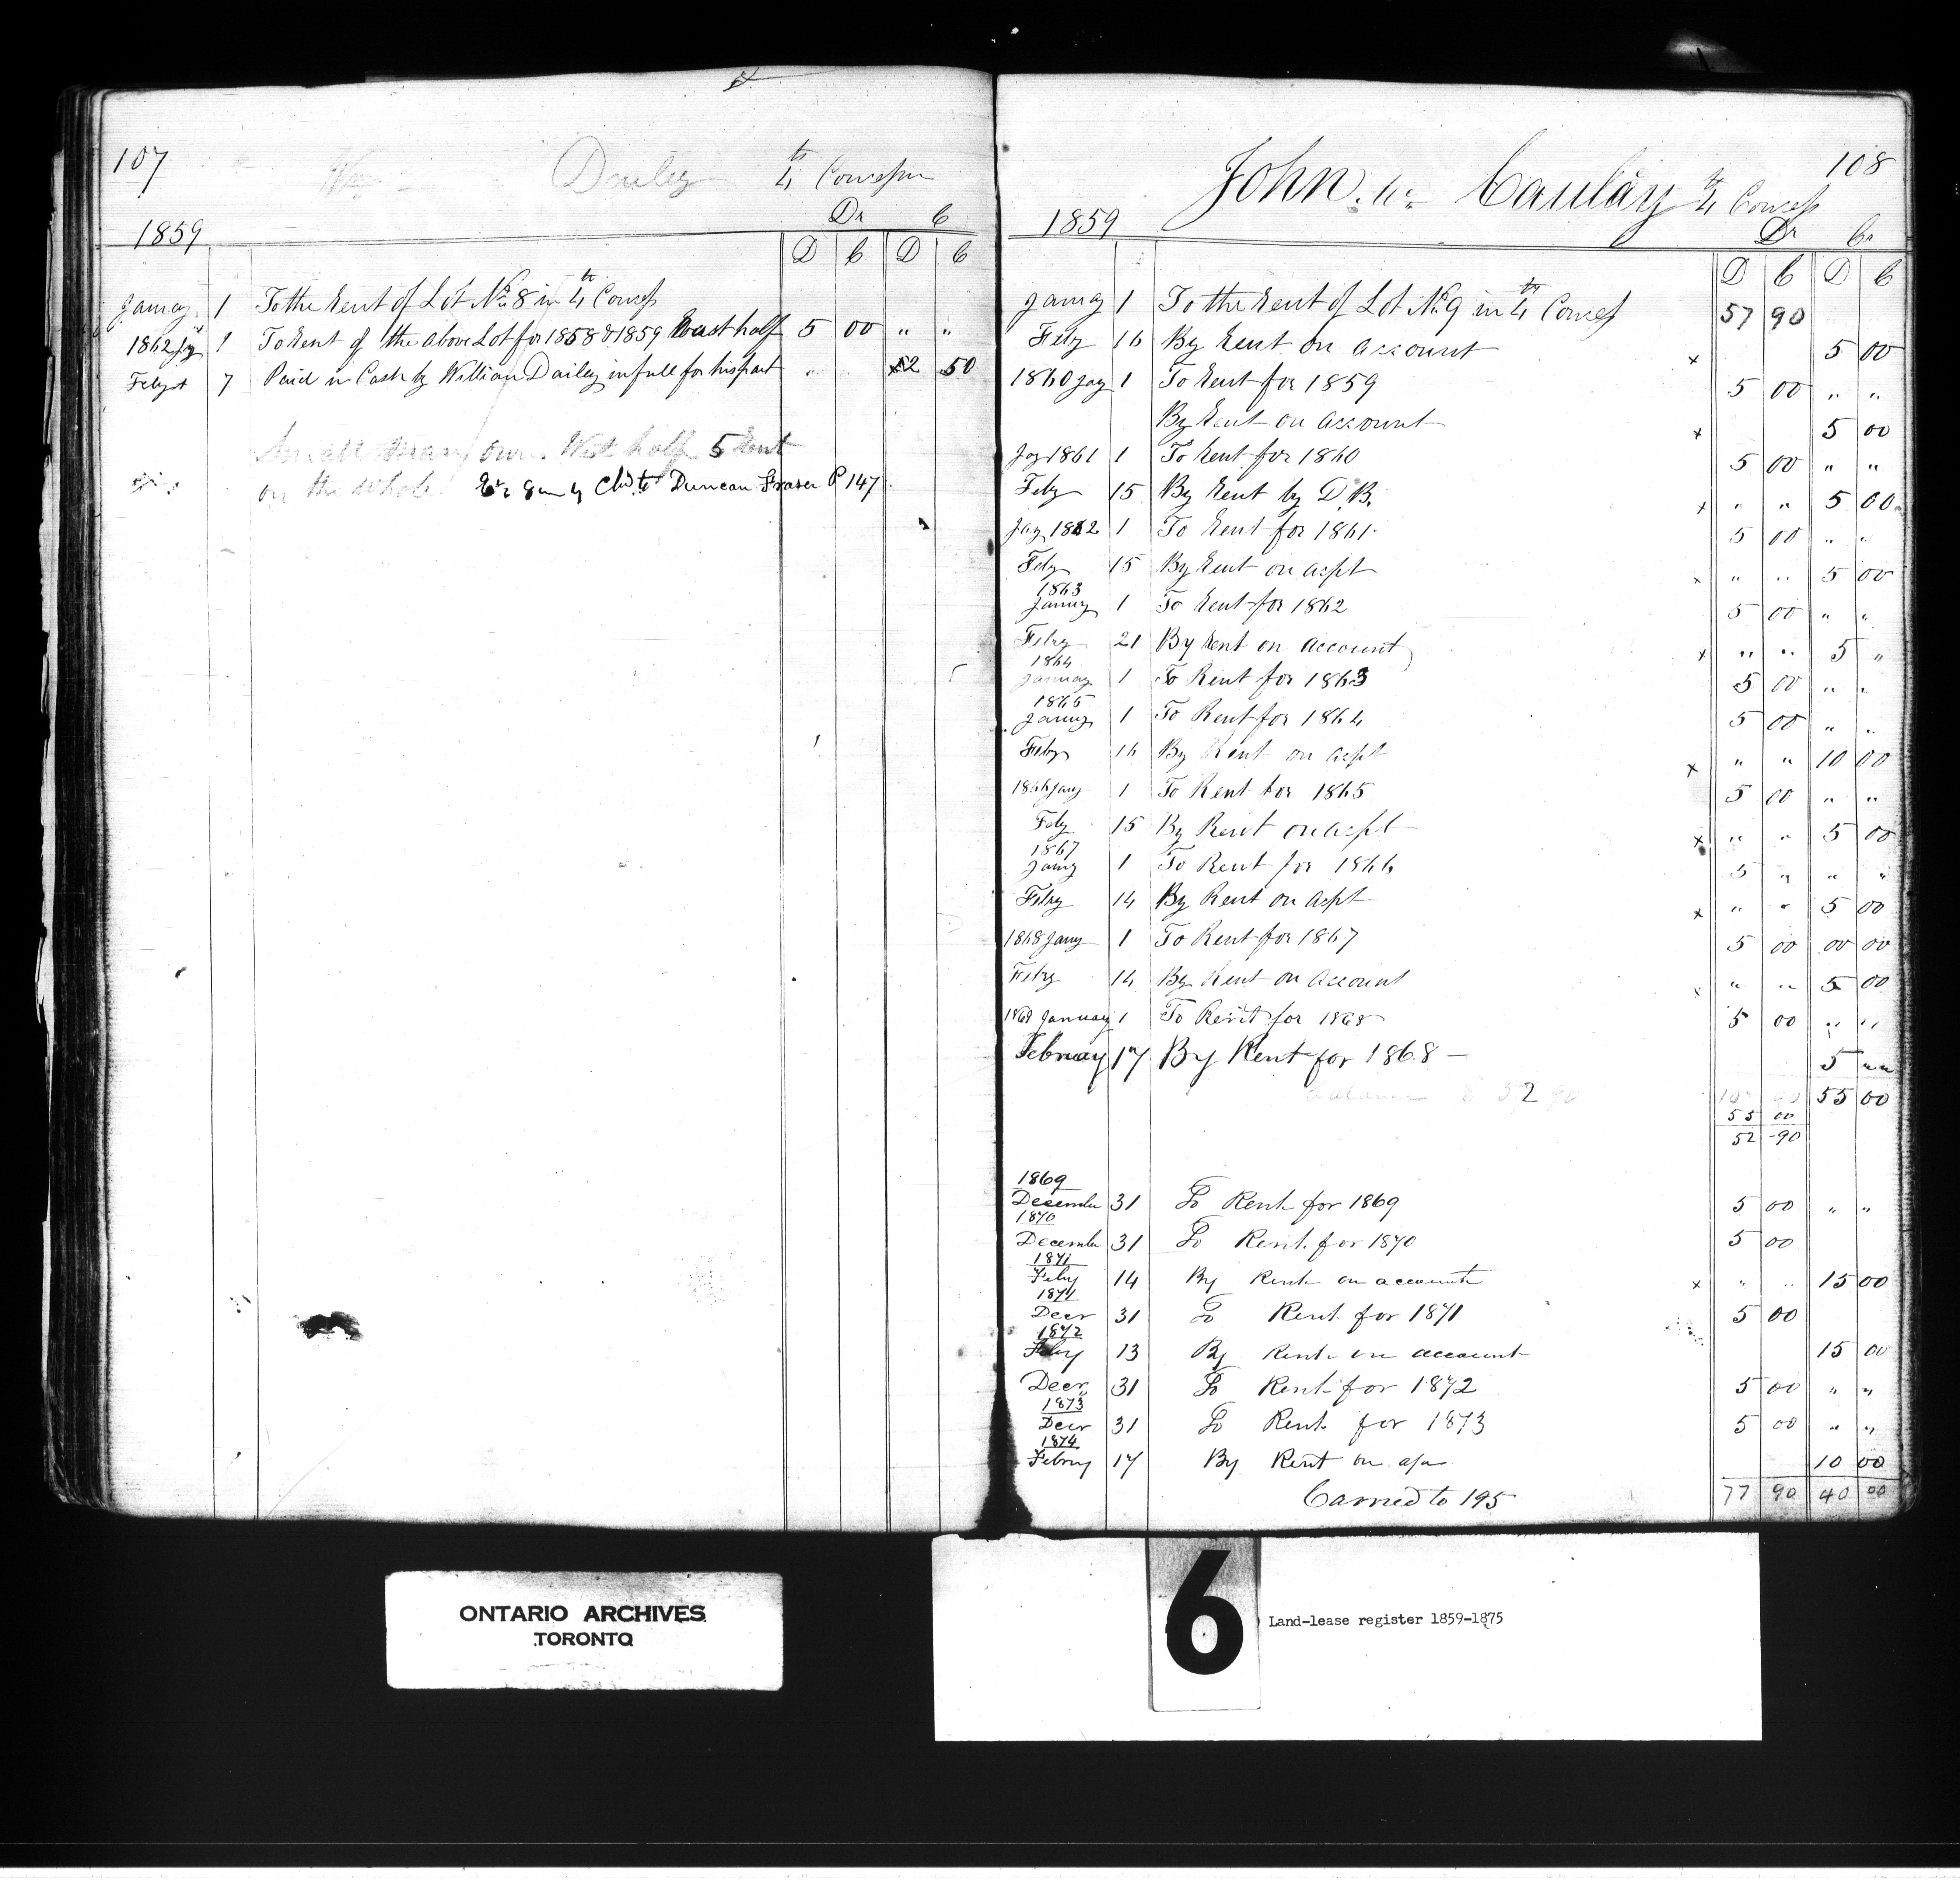 107
Wm Dailey 4th Concession
Dr C
1859
D C D C
Januay 1 To the Rent of Lot No 8 in 4th Concess
1862 Jy 1 To Rent of the above Lot for 1858 & 1859 East half 5 00 " "
Feby 7 Paid in Cash by William Dailey in full for his part " 2 50
own West half 5 Rent
on the Whole Duncan Fraser P 147
108
John Mc Caulay 4th Concess
1859 Dr Cr
D C D C
Januay 1 To the Rent of Lot No 9 in 4th Concess 57 90
Feby 16 By Rent on account x 5 00
1860 Jay 1 To Rent for 1859 5 00 " "
By Rent on account x 5 00
Jay 1861 1 To Rent for 1860 5 00 " "
Feby 15 By Rent by D B. x " " 5 00
Jay 1862 1 To Rent for 1861 5 00 " "
Feby 15 By Rent on acpt x " " 5 00
1863
Januy 1 To Rent for 1862 5 00 " "
Febry 21 By Rent on account x " " 5 "
1864
Januay 1 To Rent for 1863 5 00 " "
1865
Januy 1 To Rent for 1864 5 00 " "
Feby 16 By Rent on acpt x " " 10 00
1866 Jany 1 To Rent for 1865 5 00 " "
Feby 15 By Rent on acpt x " " 5 00
1867
Jany 1 To Rent for 1866 5 " " "
Febry 14 By Rent on acpt x " " 5 00
1868 Jany 1 To Rent for 1867 5 00 00 00
Febry 14 By Rent on Account x " " 5 00
1869 January 1 To Rent for 1868 5 00 " "
Februay 17 By Rent for 1868 — 5 " "
Balance 52 90 55 00
55 00
52 -90
1869
December 31 To Rent for 1869 5 00 " "
1870
December 31 To Rent for 1870 5 00
1871
Feby 14 By Rent on account x " " 15 00
1871
Decr 31 To Rent for 1871 5 00
1872
Feby 13 By Rent on account 15 00
Decr 31 To Rent for 1872 5 00 " "
1873
Decr 31 To Rent for 1873 5 00 " "
1874
Febry 17 By Rent on a/c 10 00
Carried to 195 77 90 40 00
ONTARIO ARCHIVES
TORONTO
6
Land-lease register 1859-1875